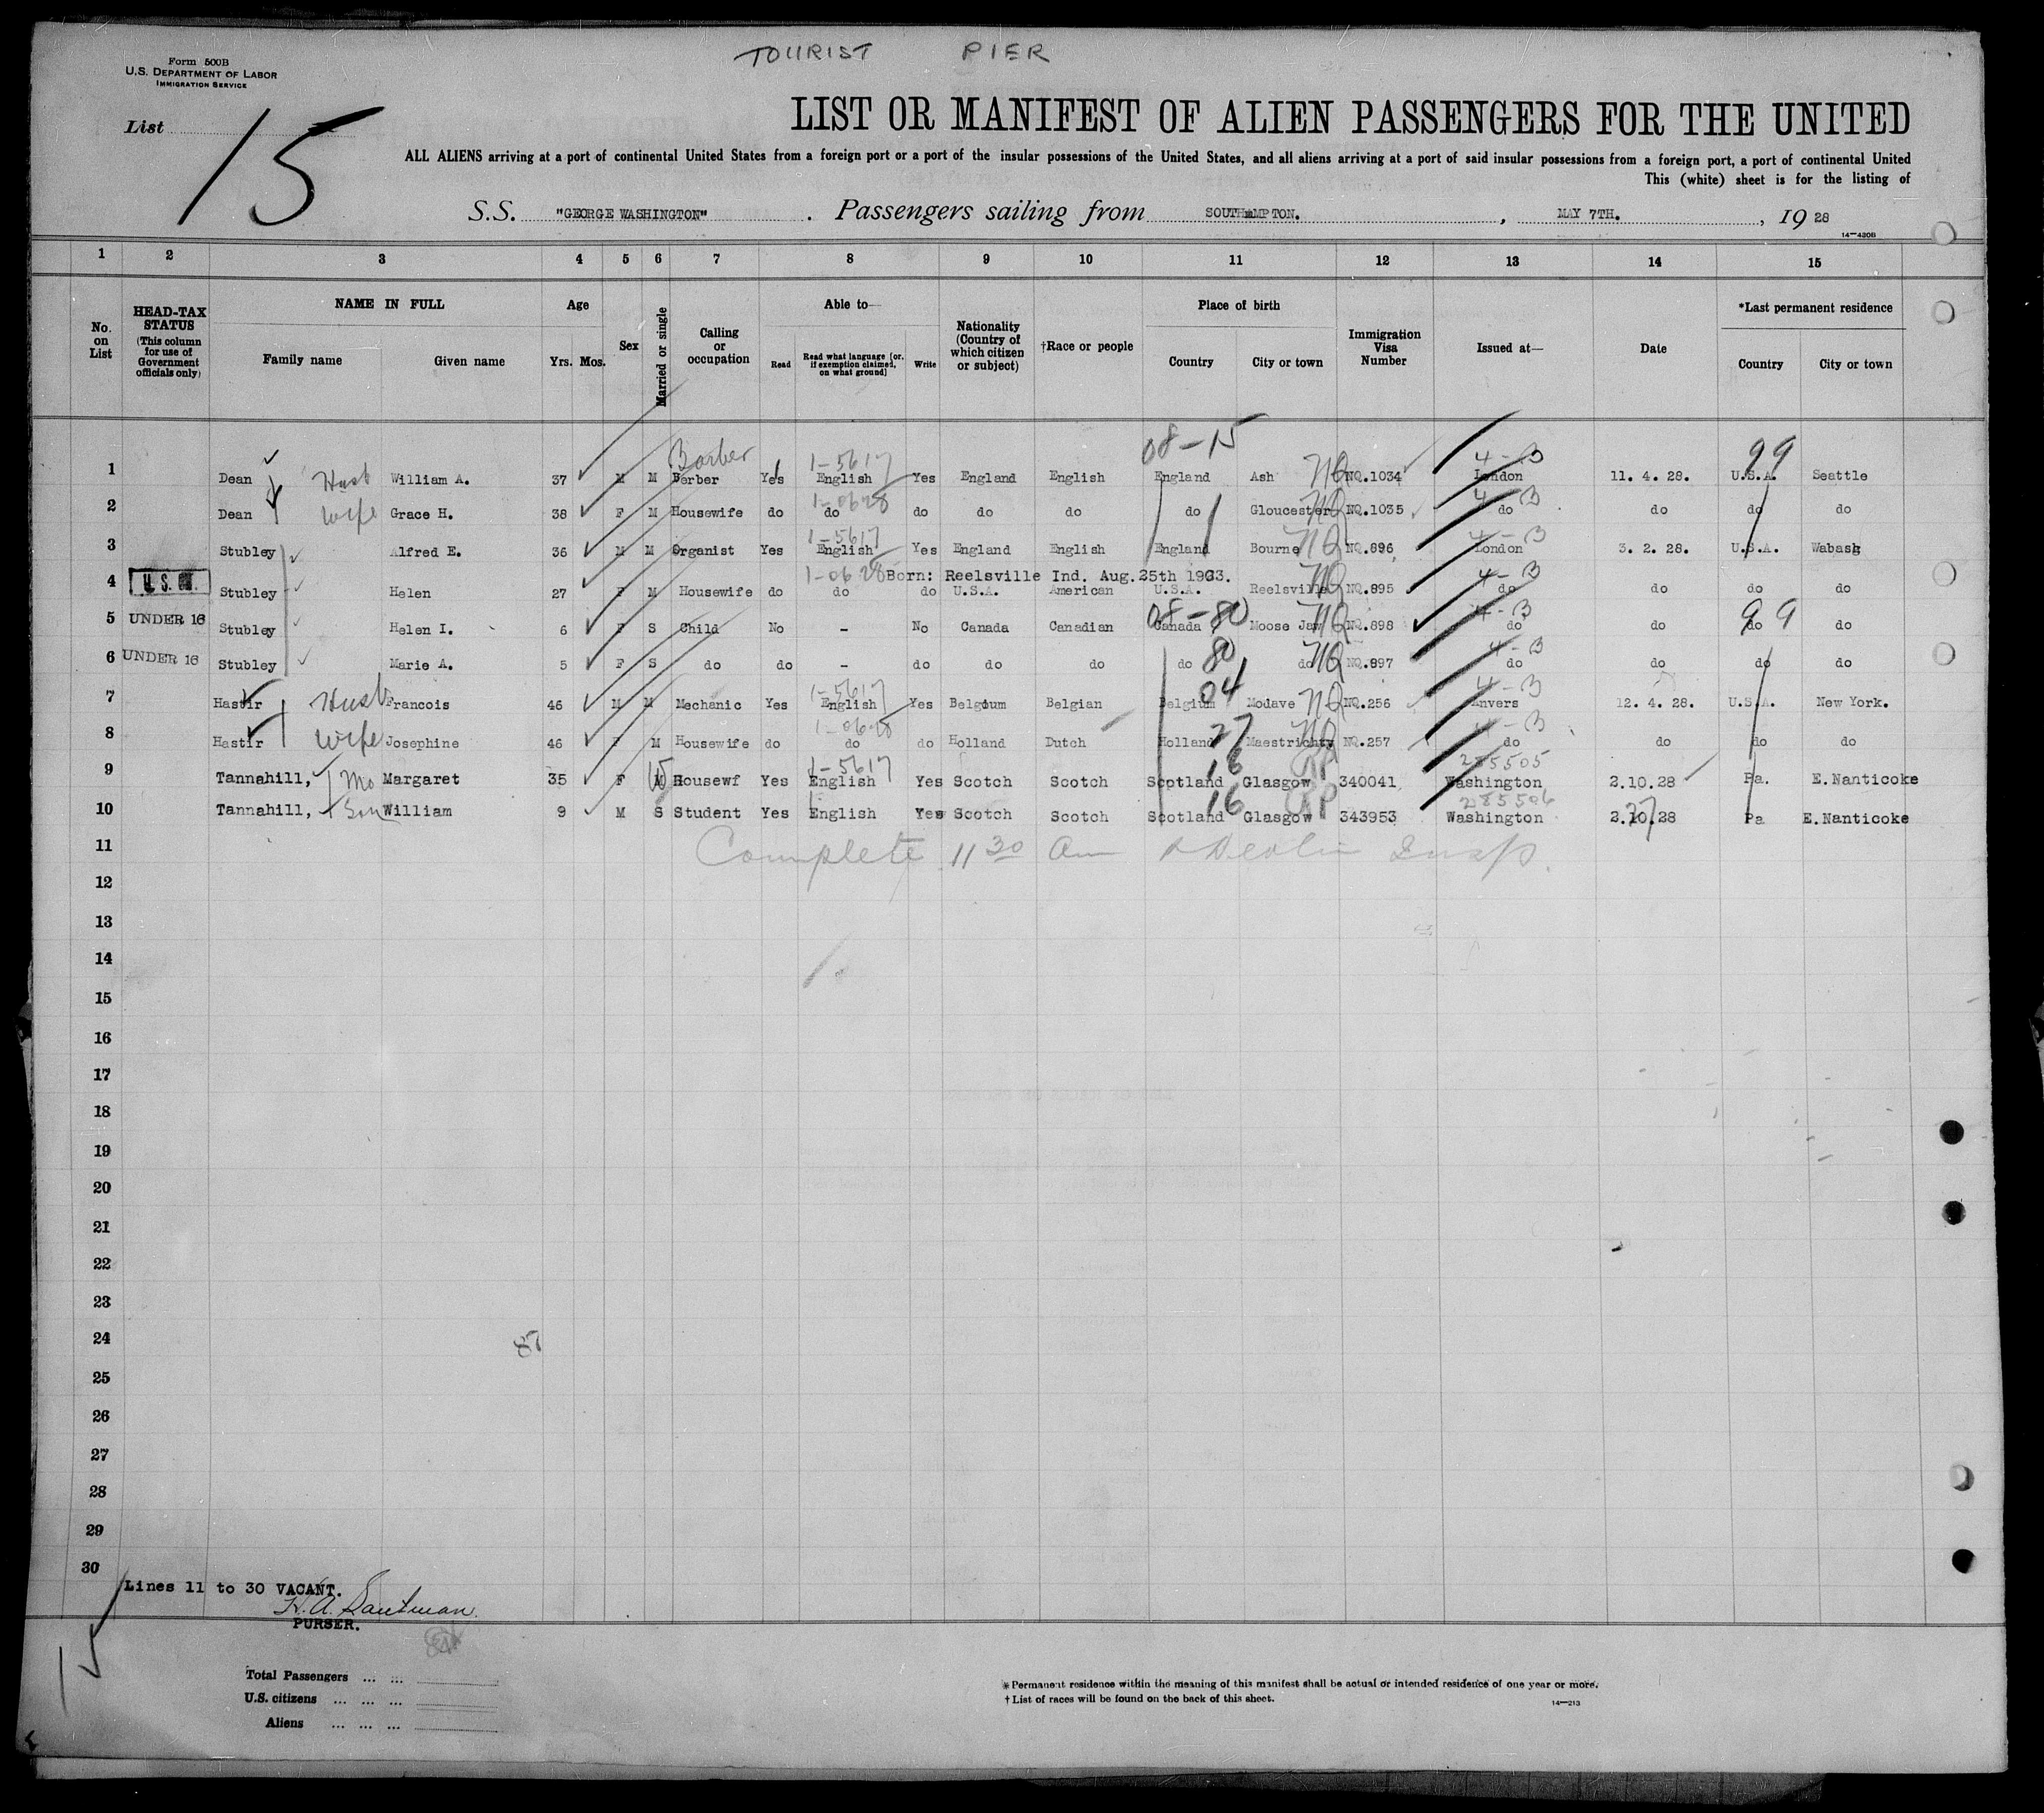 TOURIST PIER
Form 500B
U.S. DEPARTMENT OF LABOR
IMMIGRATION SERVICE
List 15
LIST OR MANIFEST OF ALIEN PASSENGERS FOR THE UNITED
ALL ALIENS arriving at a port of continental United States from a foreign port or a port of the insular possessions of the United States, and all aliens arriving at a port of said insular possessions from a foreign port, a port of continental United
This (white) sheet is for the listing of
S.S. "GEORGE WASHINGTON" . Passengers sailing from SOUTHAMPTON. , MAY 7TH. , 19 28
14—430B
1 2 3 4 5 6 7 8 9 10 11 12 13 14 15
No. on List
HEAD-TAX STATUS (This column for use of Government officials only)
NAME IN FULL Family name Given name
Age Yrs. Mos.
Sex
Married or single
Calling or occupation
Able to— Read Read what language [or, if exemption claimed, on what ground] Write
Nationality (Country of which citizen or subject)
†Race or people
Place of birth Country City or town
Immigration Visa Number
Issued at—
Date
*Last permanent residence Country City or town
08-15
Barber 1-5617 4-B 99
1 Dean Husb William A. 37 M M Berber Yes English Yes England English England Ash NQ NQ.1034 London 11. 4. 28. U.S.A. Seattle
1-0628 4-B
2 Dean Wife Grace H. 38 F M Housewife do do do do do do Gloucester NQ NQ.1035 do do do do
1-5617 4-B
3 Stubley Alfred E. 36 M M Organist Yes English Yes England English England Bourne NQ NQ.896 London 3. 2. 28. U.S.A. Wabash
1-0628 Born: Reelsville Ind. Aug. 25th 1903. 4-B
4 U.S. Stubley Helen 27 F M Housewife do do do U.S.A. American U.S.A. Reelsville NQ NQ.895 do do do do
08-80 4-B 99
5 UNDER 16 Stubley Helen I. 6 F S Child No - No Canada Canadian Canada Moose Jaw NQ NQ.898 do do do do
80 4-B
6 UNDER 16 Stubley Marie A. 5 F S do do - do do do do do NQ NQ.897 do do do do
1-5617 04 4-B
7 Hastir Husb Francois 46 M M Mechanic Yes English Yes Belgium Belgian Belgium Modave NQ NQ.256 Anvers 12. 4. 28. U.S.A. New York.
1-0628 27 4-B
8 Hastir Wife Josephine 46 F M Housewife do do do Holland Dutch Holland Maestricht NQ NQ.257 do do do do
1-5617 16 285505
9 Tannahill, Mo Margaret 35 F M Housewf Yes English Yes Scotch Scotch Scotland Glasgow RP 340041 Washington 2.10.28 Pa. E.Nanticoke
16 285506
10 Tannahill, Son William 9 M S Student Yes English Yes Scotch Scotch Scotland Glasgow RP 343953 Washington 2.10.28 Pa E.Nanticoke
11 Complete 11 30 Am Insp.
12
13
14
15
16
17
18
19
20
21
22
23
24
87
25
26
27
28
29
30
Lines 11 to 30 VACANT.
PURSER.
15
Total Passengers ... ...
U.S. citizens ... ... ...
Aliens ... ... ...
* Permanent residence within the meaning of this manifest shall be actual or intended residence of one year or more.
† List of races will be found on the back of this sheet.
14—213